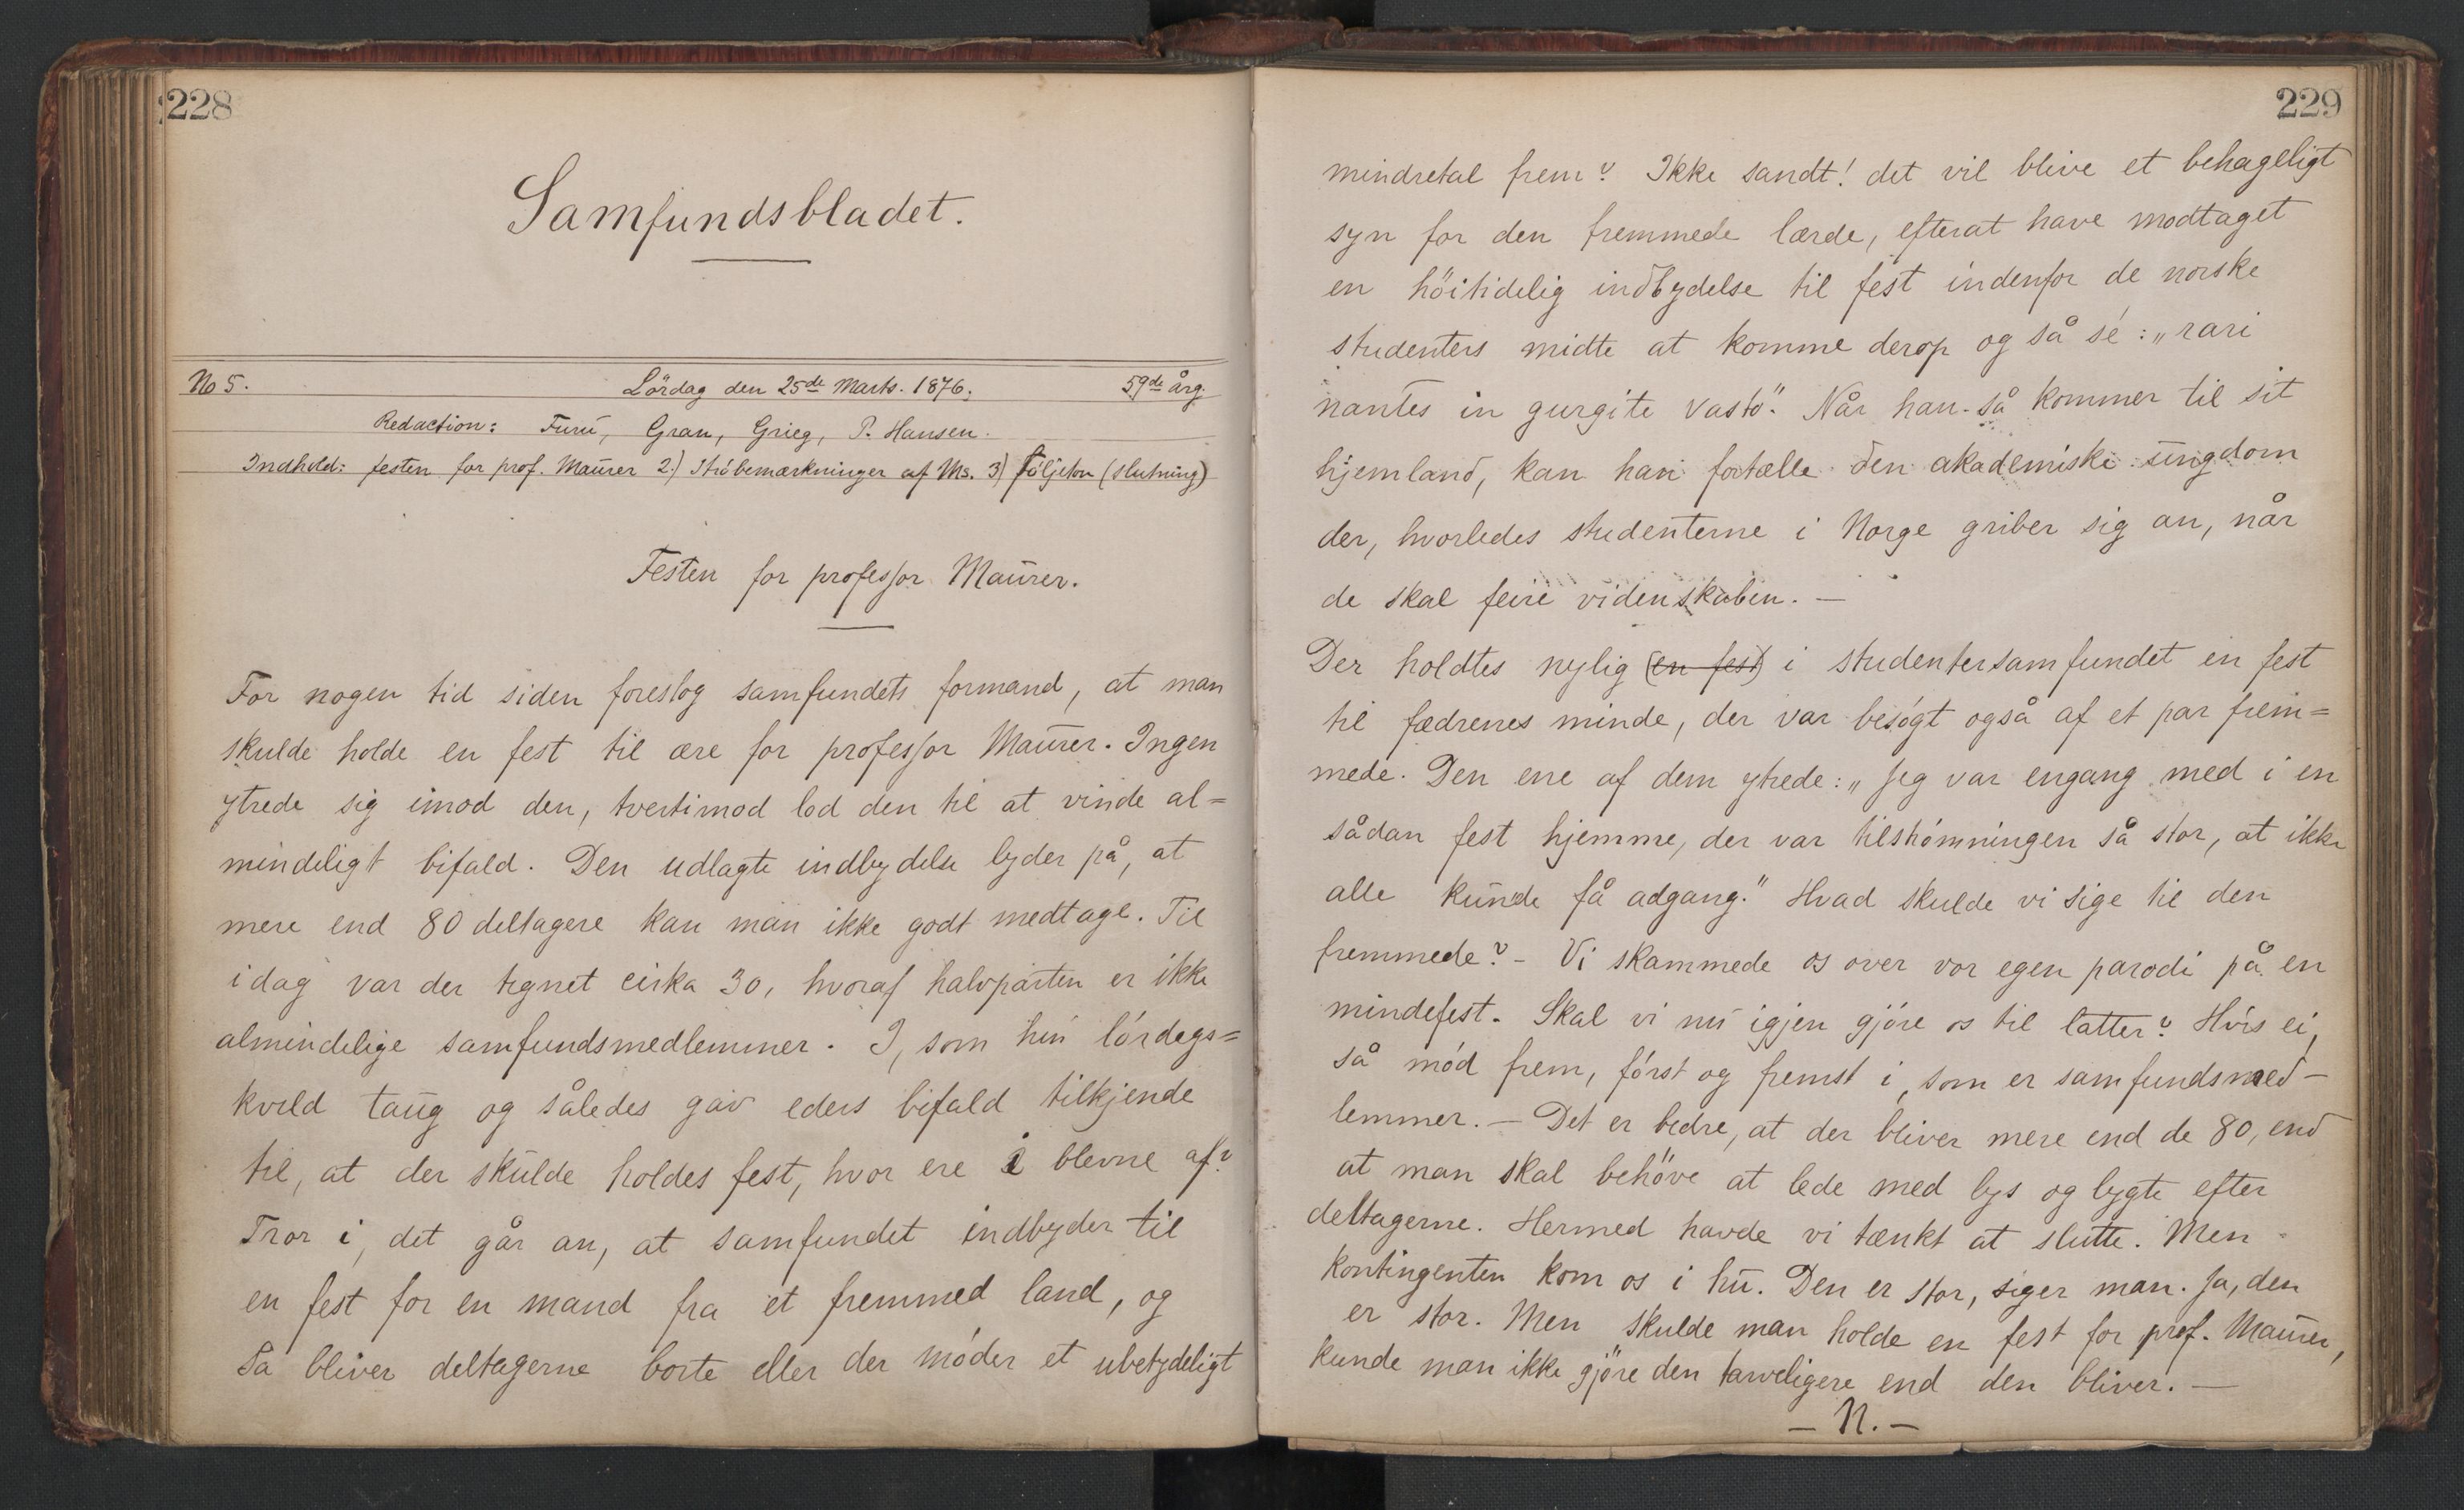 228
Samfundsbladet.
No 5. Lördag den 25de Marts. 1876. 59de årg.
Redaction: Furu, Gran, Grieg, P. Hansen.
Indhold: festen for prof. Maurer 2.) Ströbemærkninger af Ms. 3) Följeton (slutning)
Festen for professor Maurer.
For nogen tid siden foreslog samfundets formand, at man
skulde holde en fest til ære for professor Maurer. Ingen
ytrede sig imod den, tvertimod lod den til at vinde al=
mindeligt bifald. Den udlagte indbydelse lyder på, at
mere end 80 deltagere kan man ikke godt medtage. Til
idag var der tegnet cirka 30, hvoraf halvparten er ikke
almindelige samfundsmedlemmer. I, som hin lördags=
kveld taug og således gav eders bifald tilkjende
til, at der skulde holdes fest, hvor ere i blevne af?
Tror i, det går an, at samfundet indbyder til
en fest for en mand fra et fremmed land, og
så bliver deltagerne borte eller der möder et ubetydeligt
229
mindretal frem? Ikke sandt! det vil blive et behageligt
syn for den fremmede lærde, efterat have modtaget
en höitidelig indbydelse til fest indenfor de norske
studenters midte at komme derop og så sé: „rari
nantes in gurgite vasto". Når han så kommer til sit
hjemland, kan han fortælle den akademiske ungdom
der, hvorledes studenterne i Norge griber sig an, når
de skal feire videnskaben. —
Der holdtes nylig (en fest) i studentersamfundet en fest
til fædrenes minde, der var besögt også af et par frem=
mede. Den ene af dem ytrede: „Jeg var engang med i en
sådan fest hjemme, der var tilströmningen så stor, at ikke
alle kunde få adgang." Hvad skulde vi sige til den
fremmede? - Vi skammede os over vor egen parodi på en
mindefest. Skal vi nu igjen gjöre os til latter? Hvis ei,
så möd frem, först og fremst i, som er samfundsmed-
lemmer. — Det er bedre, at der bliver mere end de 80, end
at man skal behöve at lede med lys og lygte efter
deltagerne. Hermed havde vi tænkt at slutte. Men
kontingenten kom os i hu. Den er stor, siger man. Ja, den
er stor. Men skulde man holde en fest for prof. Maurer,
kunde man ikke gjöre den tarveligere end den bliver. —
— N. —